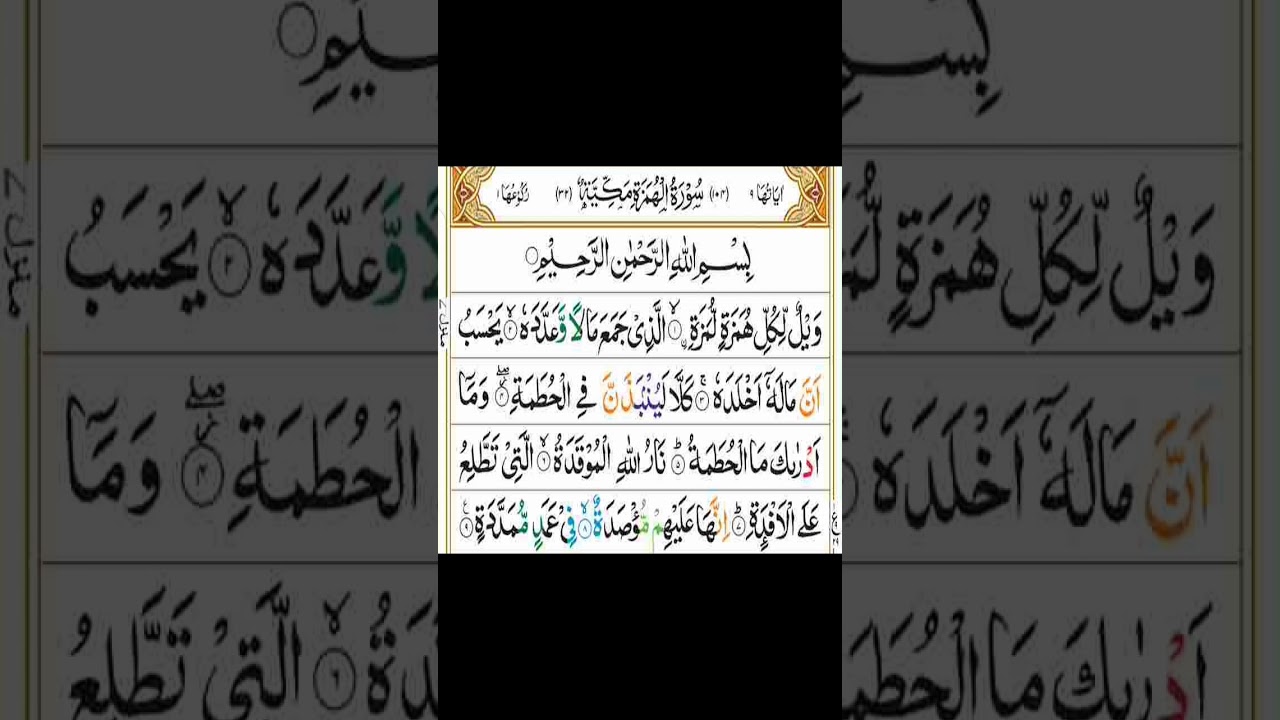 اٰيَاتُهَا ٩ (١٠٤) سُوْرَةُ الْهُمَزَةِ مَكِّيَّةٌ (٣٢) رُكُوْعُهَا ١
بِسْمِ اللهِ الرَّحْمٰنِ الرَّحِيْمِ
وَيْلٌ لِّكُلِّ هُمَزَةٍ لُّمَزَةٍ ۙ‏١ الَّذِىْ جَمَعَ مَالًا وَّعَدَّدَهٗ ۙ‏٢ يَحْسَبُ
اَنَّ مَالَهٗۤ اَخْلَدَهٗ ۚ‏٣ كَلَّا لَيُنْۢبَذَنَّ فِى الْحُطَمَةِ ۖ‏٤ وَمَاۤ
اَدْرٰىكَ مَا الْحُطَمَةُ ؕ‏٥ نَارُ اللهِ الْمُوْقَدَةُ ۙ‏٦ الَّتِىْ تَطَّلِعُ
عَلَى الْاَفْـِٕدَةِ ؕ‏٧ اِنَّهَا عَلَيْهِمْ مُّؤْصَدَةٌ ۙ‏٨ فِىْ عَمَدٍ مُّمَدَّدَةٍ ۧ‏٩